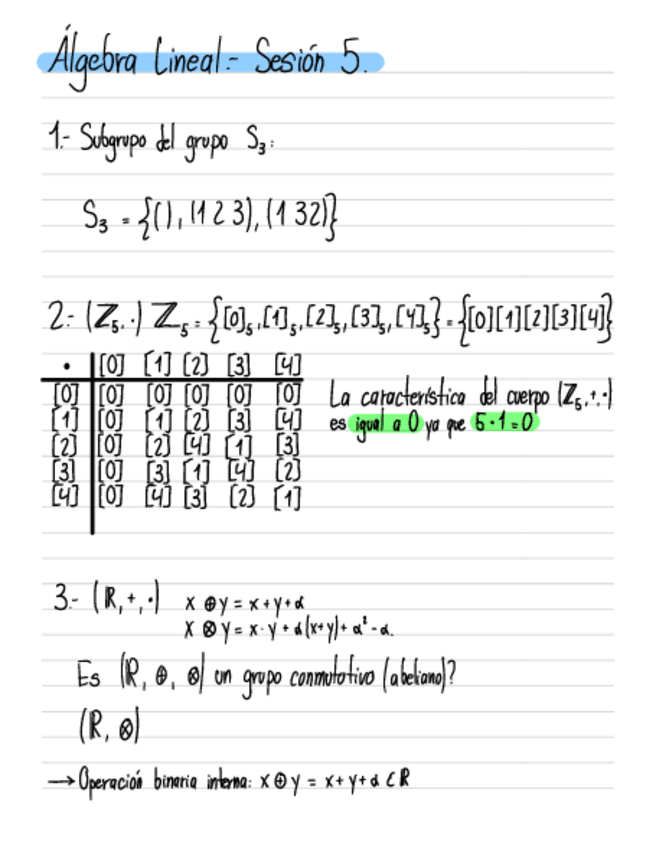 Álgebra Lineal.- Sesión 5.
1.- Subgrupo del grupo S₃:
S₃ = {(), (1 2 3), (1 32)}
2.- (ℤ₅,·) ℤ₅ = {[0]₅,[1]₅,[2]₅,[3]₅,[4]₅} = {[0][1][2][3][4]}
· [0] [1] [2] [3] [4]
[0] [0] [0] [0] [0] [0]
[1] [0] [1] [2] [3] [4]
[2] [0] [2] [4] [1] [3]
[3] [0] [3] [1] [4] [2]
[4] [0] [4] [3] [2] [1]
La característica del cuerpo (ℤ₅,+,·)
es igual a 0 ya que 5·1=0
3.- (ℝ,+,·) x ⊕ y = x+y+α
x ⊗ y = x·y + α(x+y)+ α² - α.
Es (ℝ, ⊕, ⊗) un grupo conmutativo (abeliano)?
(ℝ, ⊗)
→ Operación binaria interna: x ⊕ y = x+y+α ∈ ℝ